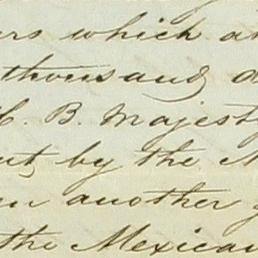 which
thousand
H. B. Majesty
by the
another
the Mexican